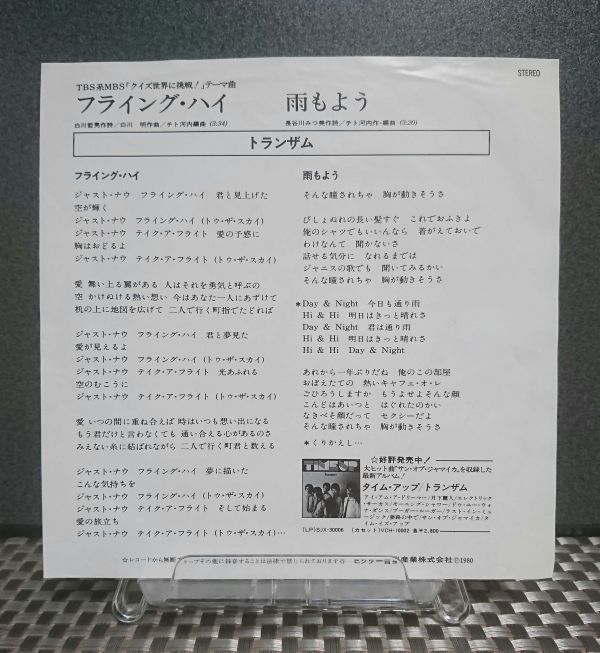 STEREO
TBS系MBS「クイズ世界に挑戦!」テーマ曲
フライング・ハイ
白川哲男作詩/白川 明作曲/チト河内編曲 (3:34)
雨もよう
長谷川みつ美作詩/チト河内作・編曲 (3:20)
トランザム
フライング・ハイ
ジャスト・ナウ フライング・ハイ 君と見上げた
空が輝く
ジャスト・ナウ フライング・ハイ (トゥ・ザ・スカイ)
ジャスト・ナウ テイク・ア・フライト 愛の予感に
胸はおどるよ
ジャスト・ナウ テイク・ア・フライト (トゥ・ザ・スカイ)
愛 舞い上る翼がある 人はそれを勇気と呼ぶの
空 かけぬける熱い想い 今はあなた一人にあずけて
机の上に地図を広げて 二人で行く町指でたどれば
ジャスト・ナウ フライング・ハイ 君と夢見た
愛が見えるよ
ジャスト・ナウ フライング・ハイ (トゥ・ザ・スカイ)
ジャスト・ナウ テイク・ア・フライト 光あふれる
空のむこうに
ジャスト・ナウ テイク・ア・フライト (トゥ・ザ・スカイ)
愛 いつの間に重ね合えば 時はいつも想い出になる
もう君だけと言わなくても 通い合える心があるのさ
みえない糸に結ばれながら 二人で行く町と数える
ジャスト・ナウ フライング・ハイ 夢に描いた
こんな気持ちを
ジャスト・ナウ フライング・ハイ (トゥ・ザ・スカイ)
ジャスト・ナウ テイク・ア・フライト そして始まる
愛の旅立ち
ジャスト・ナウ テイク・ア・フライト (トゥ・ザ・スカイ)…
雨もよう
そんな瞳されちゃ 胸が動きそうさ
びしょぬれの長い髪すぐ これでおふきよ
俺のシャツでもいいんなら 着がえておいで
わけなんて 聞かないさ
話せる気分に なれるまでは
ジャニスの歌でも 聞いてみるかい
そんな瞳されちゃ 胸が動きそうさ
*Day & Night 今日も通り雨
Hi & Hi 明日はきっと晴れさ
Day & Night 君は通り雨
Hi & Hi 明日はきっと晴れさ
Hi & Hi Day & Night
あれから一年ぶりだね 俺のこの部屋
おぼえたての 熱いキャフェ・オ・レ
ごひろうしますか もうよせよそんな顔
こんどはあいつと はぐれたのかい
なきべそ顔だって セクシーだよ
そんな瞳されちゃ 胸が動きそうさ
*くりかえし…
TIME UP
☆好評発売中!
大ヒット曲"サン・オブ・ジャマイカ"を収録した
最新アルバム!
タイム・アップ/トランザム
アイ・アム・ア・ドリーマー/月下麗人/エレクトリック
・サーカス/モーニング・シャワー/ドゥ・ユー・ウォ
ナ・ダンス/ブーガー・ルーガー/ラスト・イン・ミュ
ージック/夢路の中で/サン・オブ・ジャマイカ/タ
イム・イズ・アップ
(LP)SJX-30006 (カセット)VCH-10002 各¥2,800
☆レコードから無断でテープその他に録音することは法律で禁じられております☆
ビクター音楽産業株式会社 ©1980